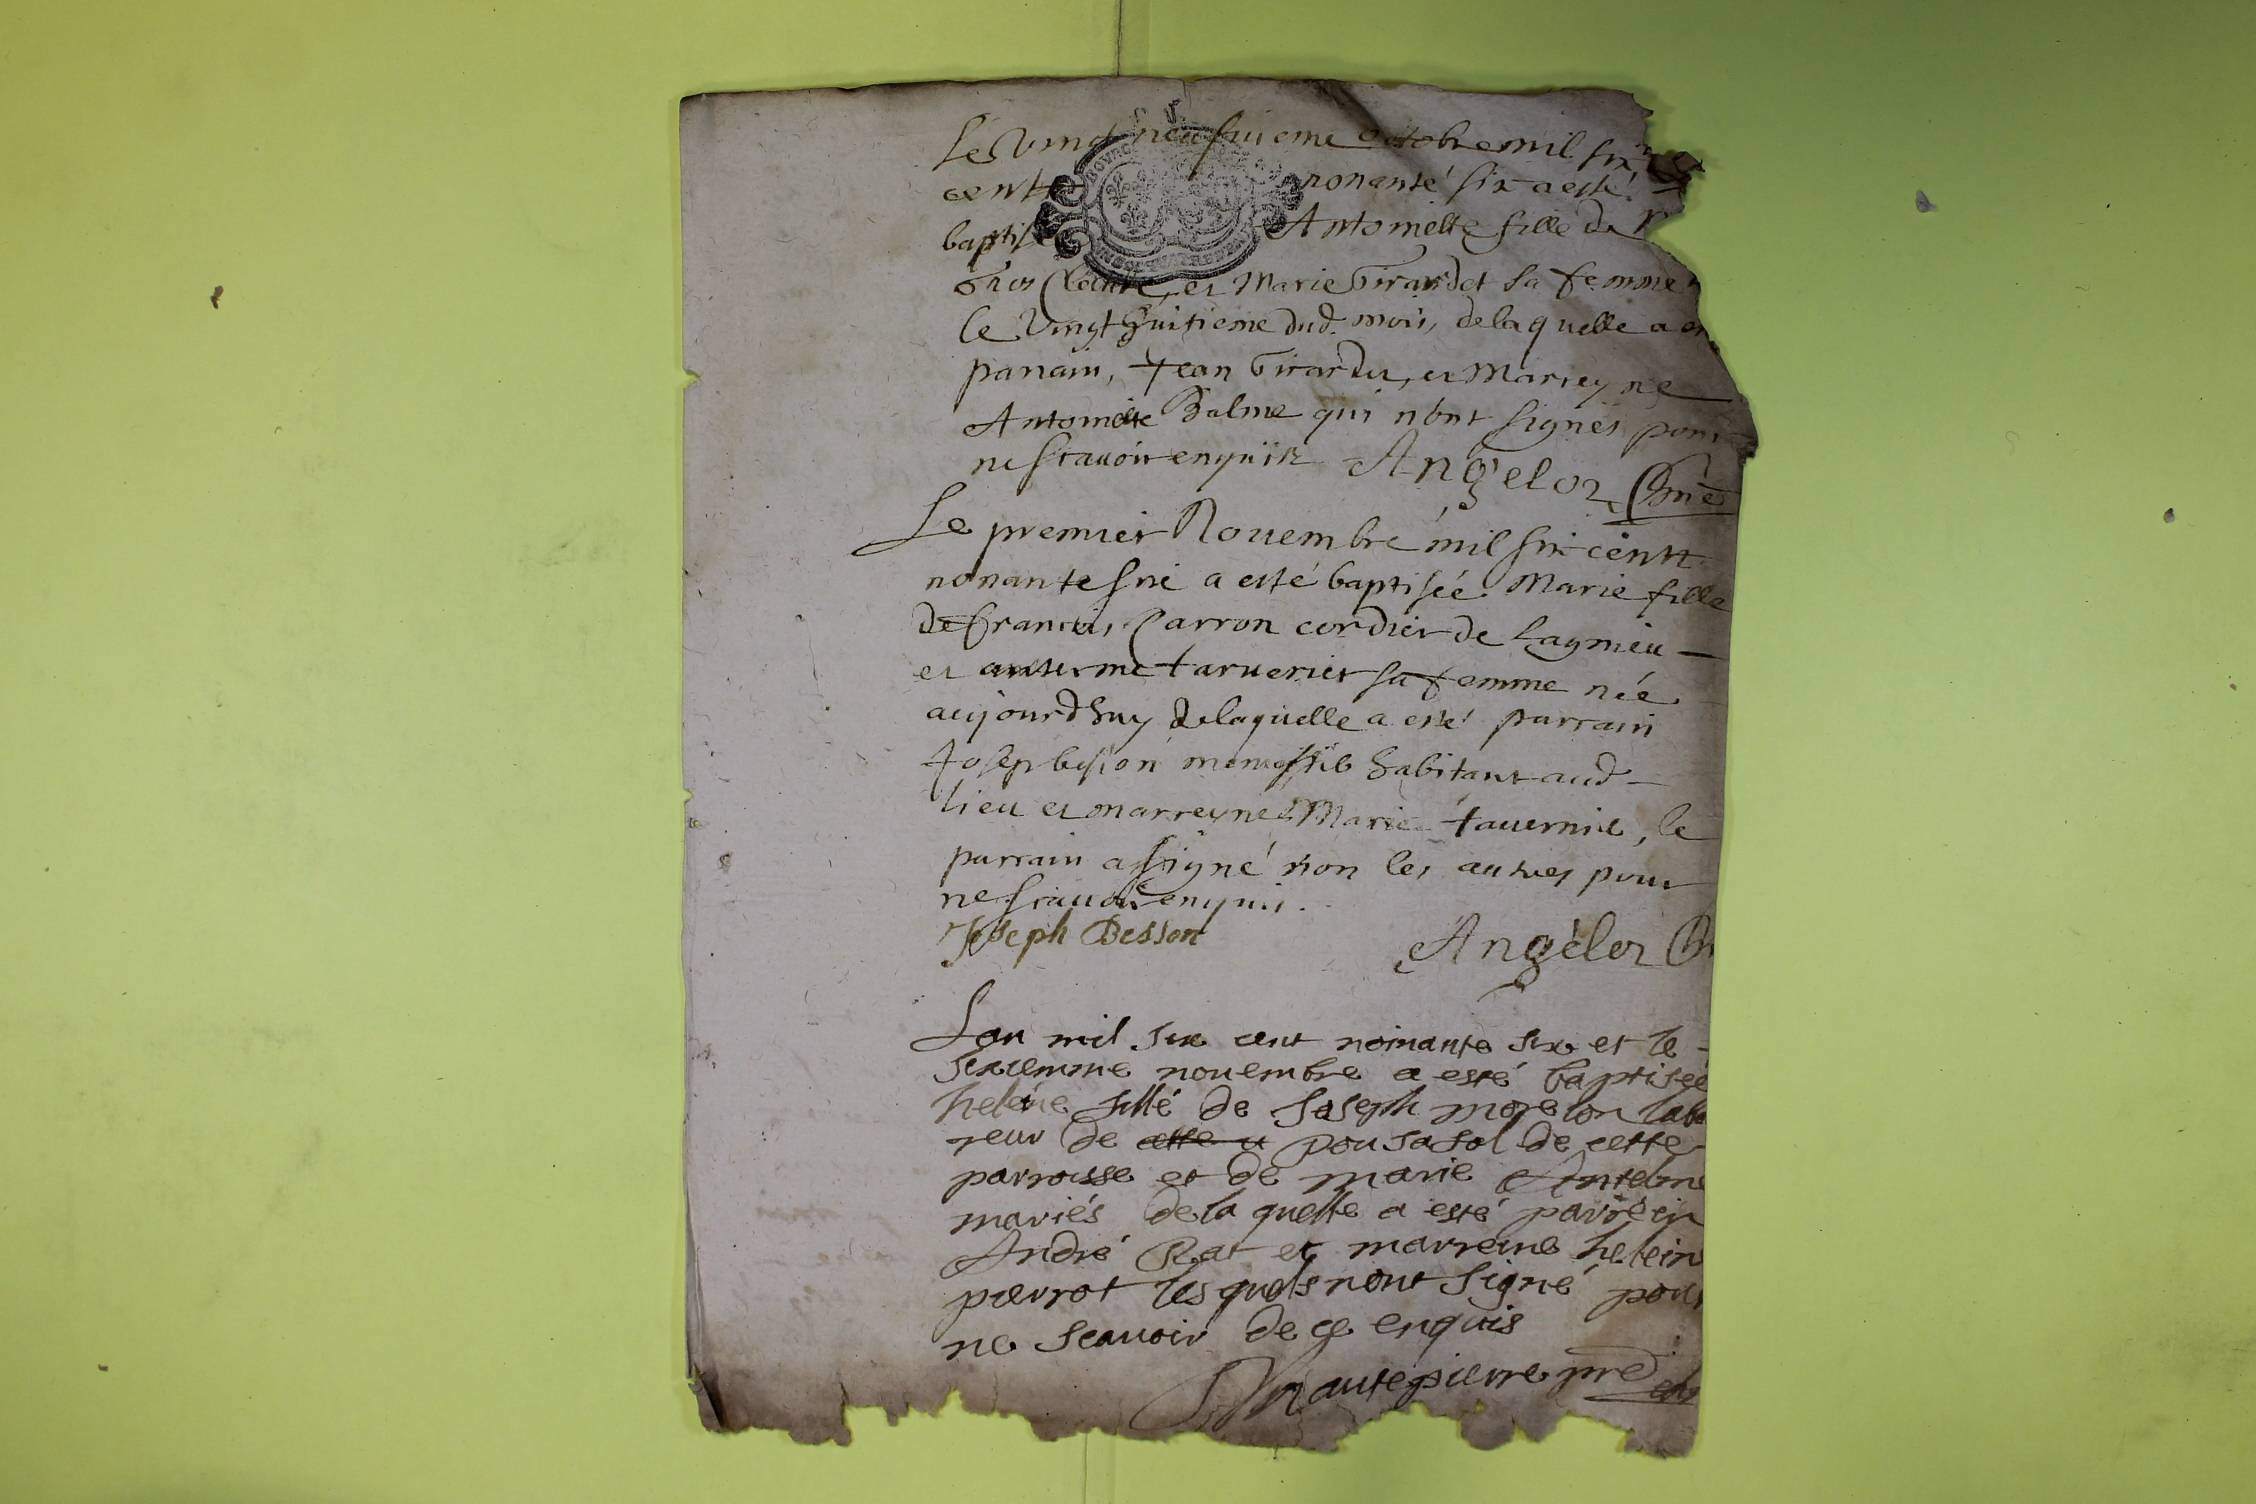 Le vingt neufuieme octobre mil six
cents nonante six a esté
baptisé Antoinette fille de
Gros Claude, et Marie Girardet sa femme
le vingt huitieme dud. mois, de laquelle a
parrain, Jean Girardet, et Marreyne
Antoinette Balme qui n'ont signés pour
ne scavoir enquis Angelot
Le premier Nouembre mil six cents
nonante six a esté baptisée Marie fille
de francois Carron cordier de Lagnieu
et tarverier sa femme née
aujourdhuy de laquelle a esté parrain
Joseph besson habitant aud
lieu et marreyne Marie tauernie, le
parrain a signé non les autres pour
ne scauoir enquis.
Joseph Besson
Angelot
Lan mil six cent nonante six et le
sixiemme nouembre a esté baptisée
heleine fille de Joseph morelon labo
reur de pousafol de cette
parroisse et de marie Antelme
mariés de la quelle a esté parrein
André Rat et marreine helein
pierrot les quels nont signé pour
ne scauoir de ce enquis
hautepierre pre